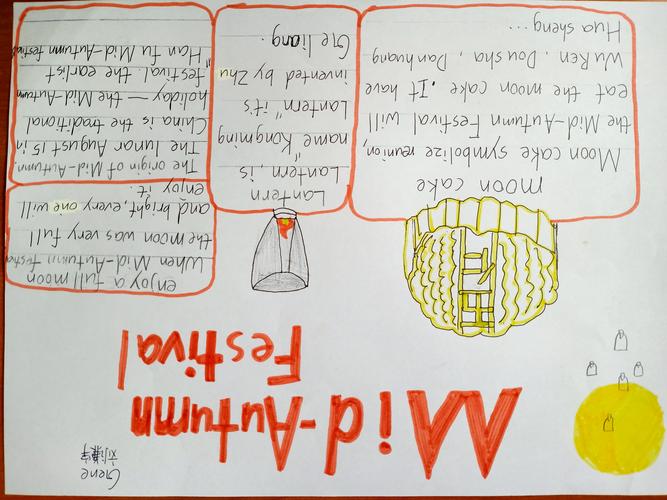 Gene 刘
Mid-Autumn
Festival
moon cake
Moon cake symbolize reunion,
the Mid-Autumn Festival will
eat the moon cake. It have
Wu Ren、Dou sha、Dan huang
Hua sheng...
Lantern
Lantern, is
name "Kongming
Lantern" it's
invented by Zhu
Ge liang.
enjoy a full moon
When Mid-Autumn festiva
the moon was very full
and bright, every one will
enjoy it.
The origin of Mid-Autumn.
The lunar August 15 in
China is the traditional
holiday — the Mid-Autumn
festival. the earlist
"Han fu Mid-Autumn festival